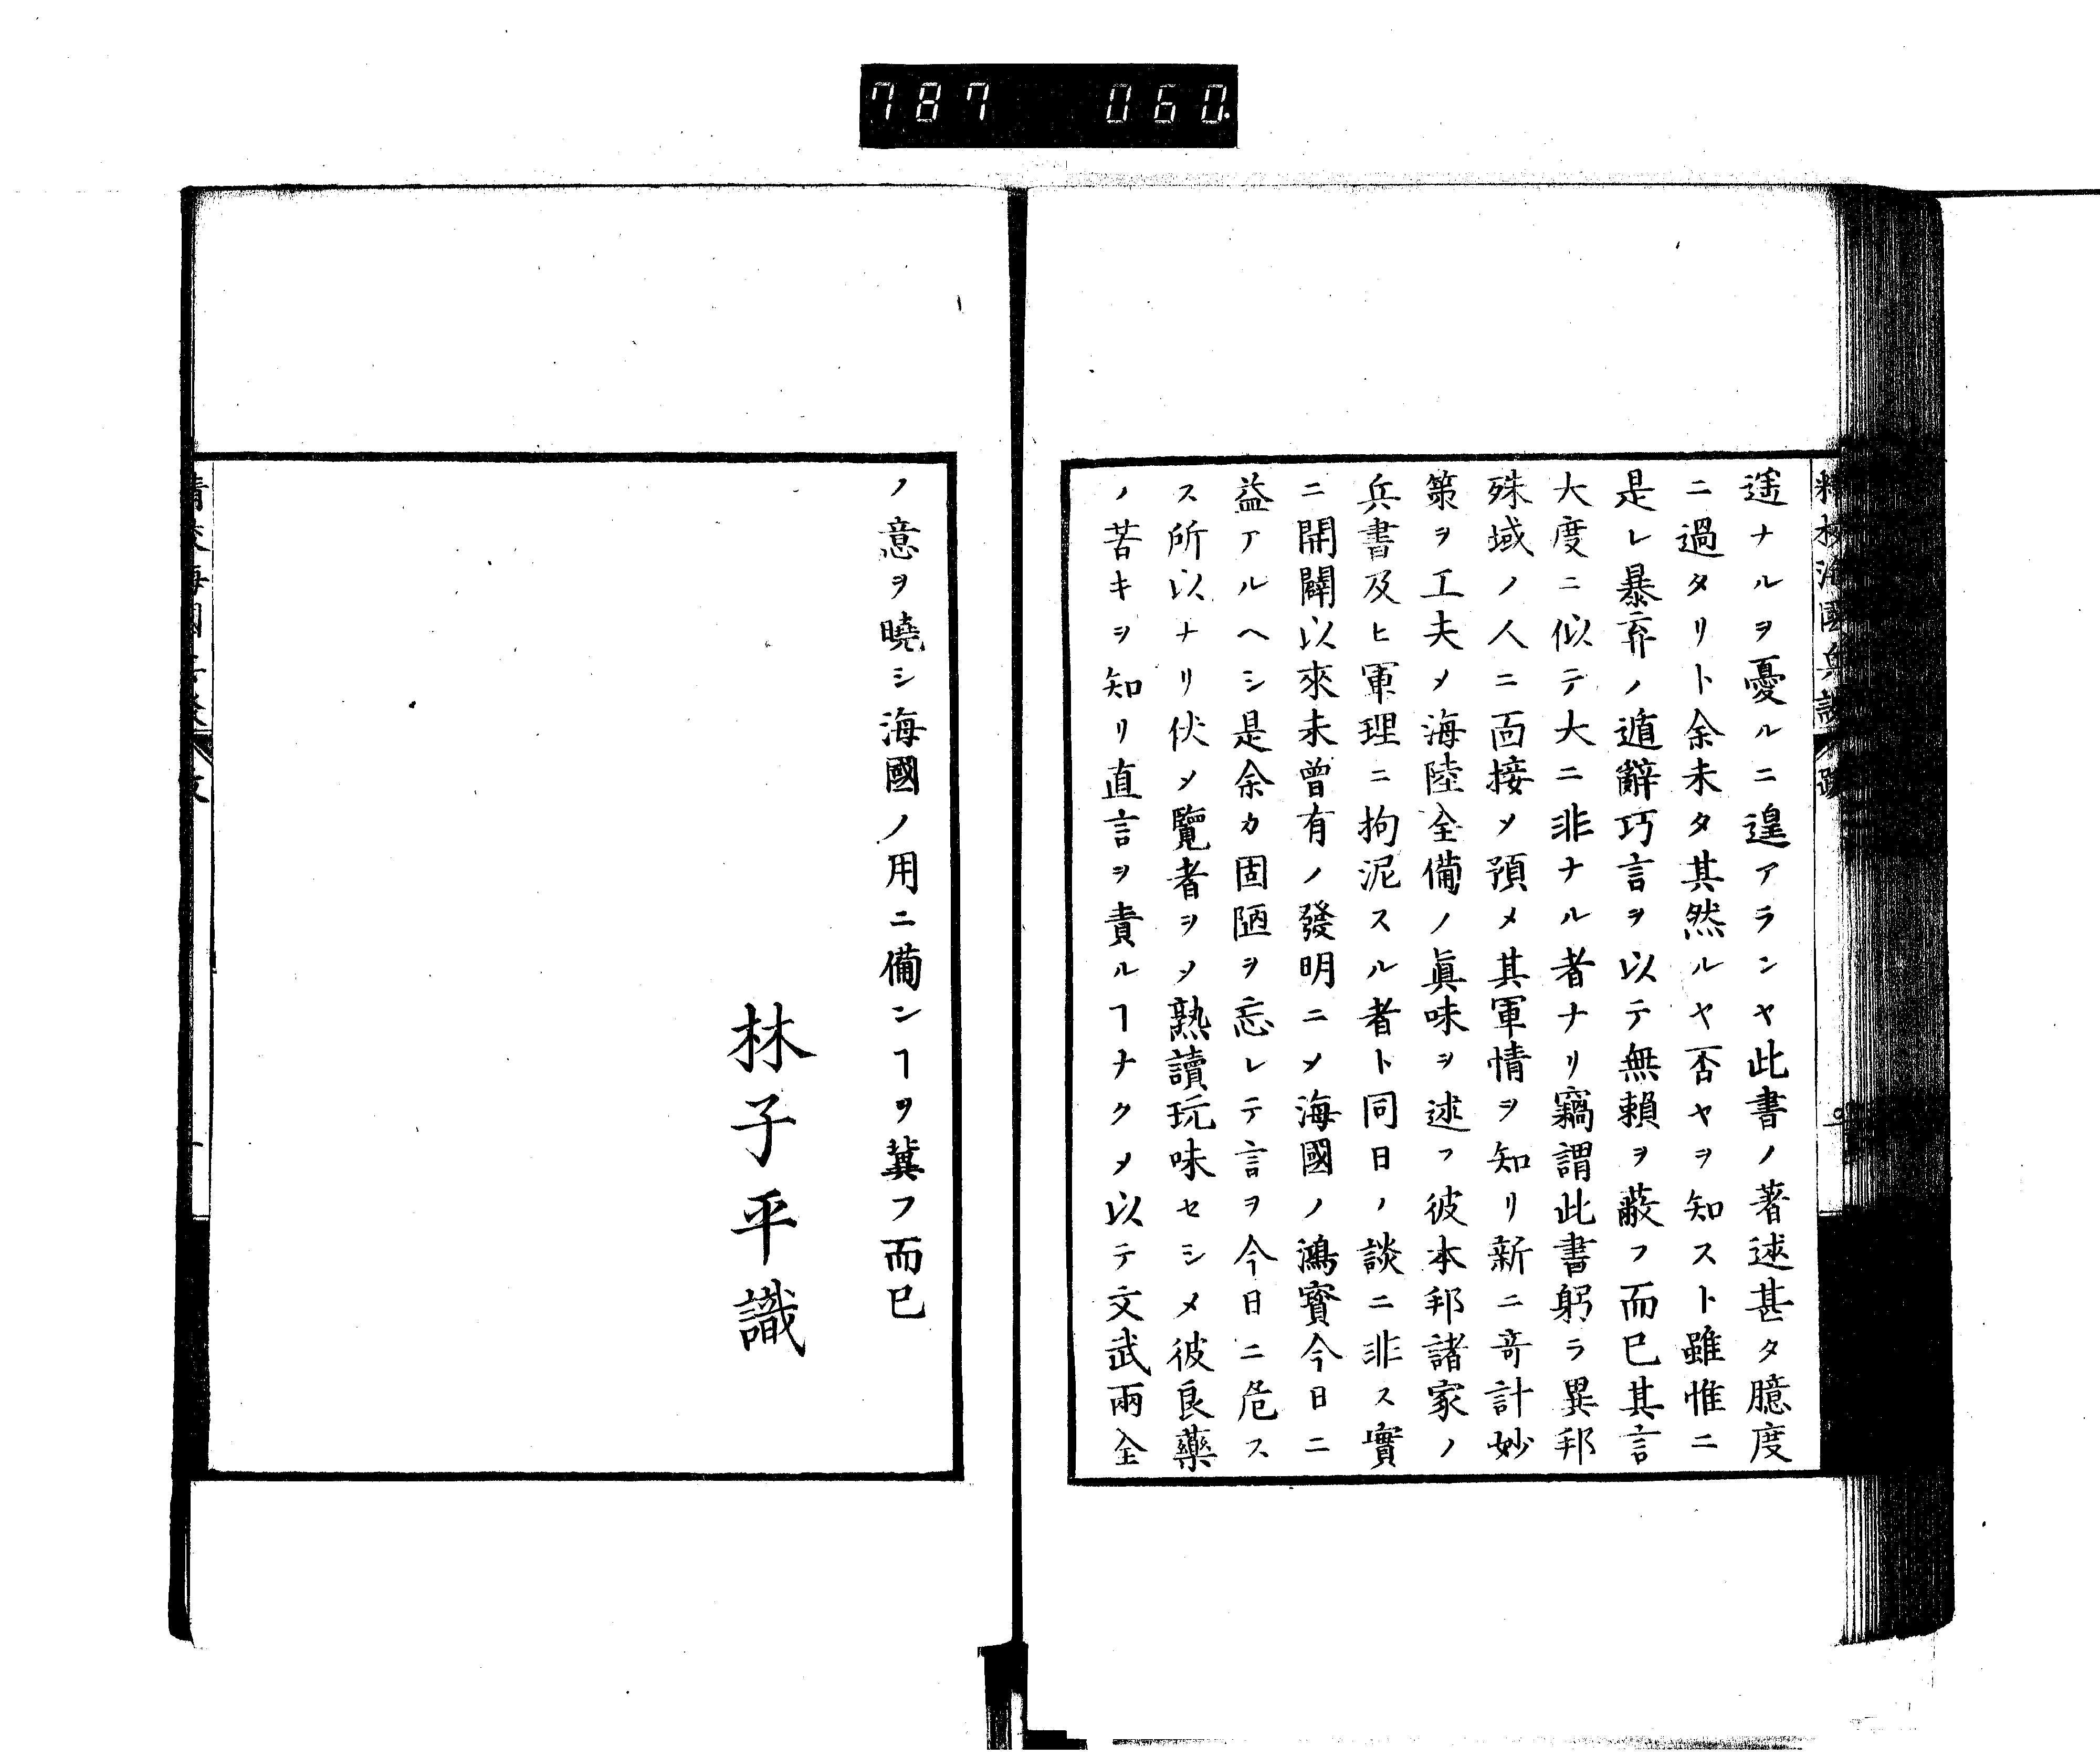 787 060
精校海國兵談 跋
遥ナルヲ憂ルニ遑アランヤ此書ノ著述甚タ臆度
ニ過タリト余未タ其然ルヤ否ヤヲ知スト雖惟ニ
是レ暴弃ノ遁辭巧言ヲ以テ無賴ヲ蔽フ而已其言
大度ニ似テ大ニ非ナル者ナリ竊謂此書躬ラ異邦
殊域ノ人ニ面接〆預メ其軍情ヲ知リ新ニ奇計妙
策ヲ工夫〆海陸全備ノ眞味ヲ述フ彼本邦諸家ノ
兵書及ヒ軍理ニ拘泥スル者ト同日ノ談ニ非ス實
ニ開闢以來未曾有ノ發明ニ〆海國ノ鴻寳今日ニ
益アルヘシ是余カ固陋ヲ忘レテ言ヲ今日ニ危ス
ス所以ナリ伏〆覽者ヲ〆熟讀玩味セシメ彼良藥
ノ苦キヲ知リ直言ヲ責ルヿナク〆以テ文武兩全
ノ意ヲ曉シ海國ノ用ニ備ンヿヲ冀フ而已
林子平識